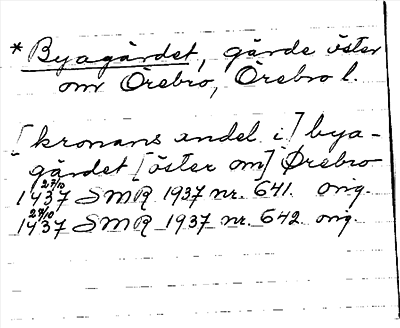 * Byagärdet, gärde öster
om Örebro, Örebro l.
[kronans andel i] bya-
gärdet [öster om] Örebro
27/10
1437 SMR 1937 nr. 641. orig.
28/10
1437 SMR 1937 nr. 642 orig.